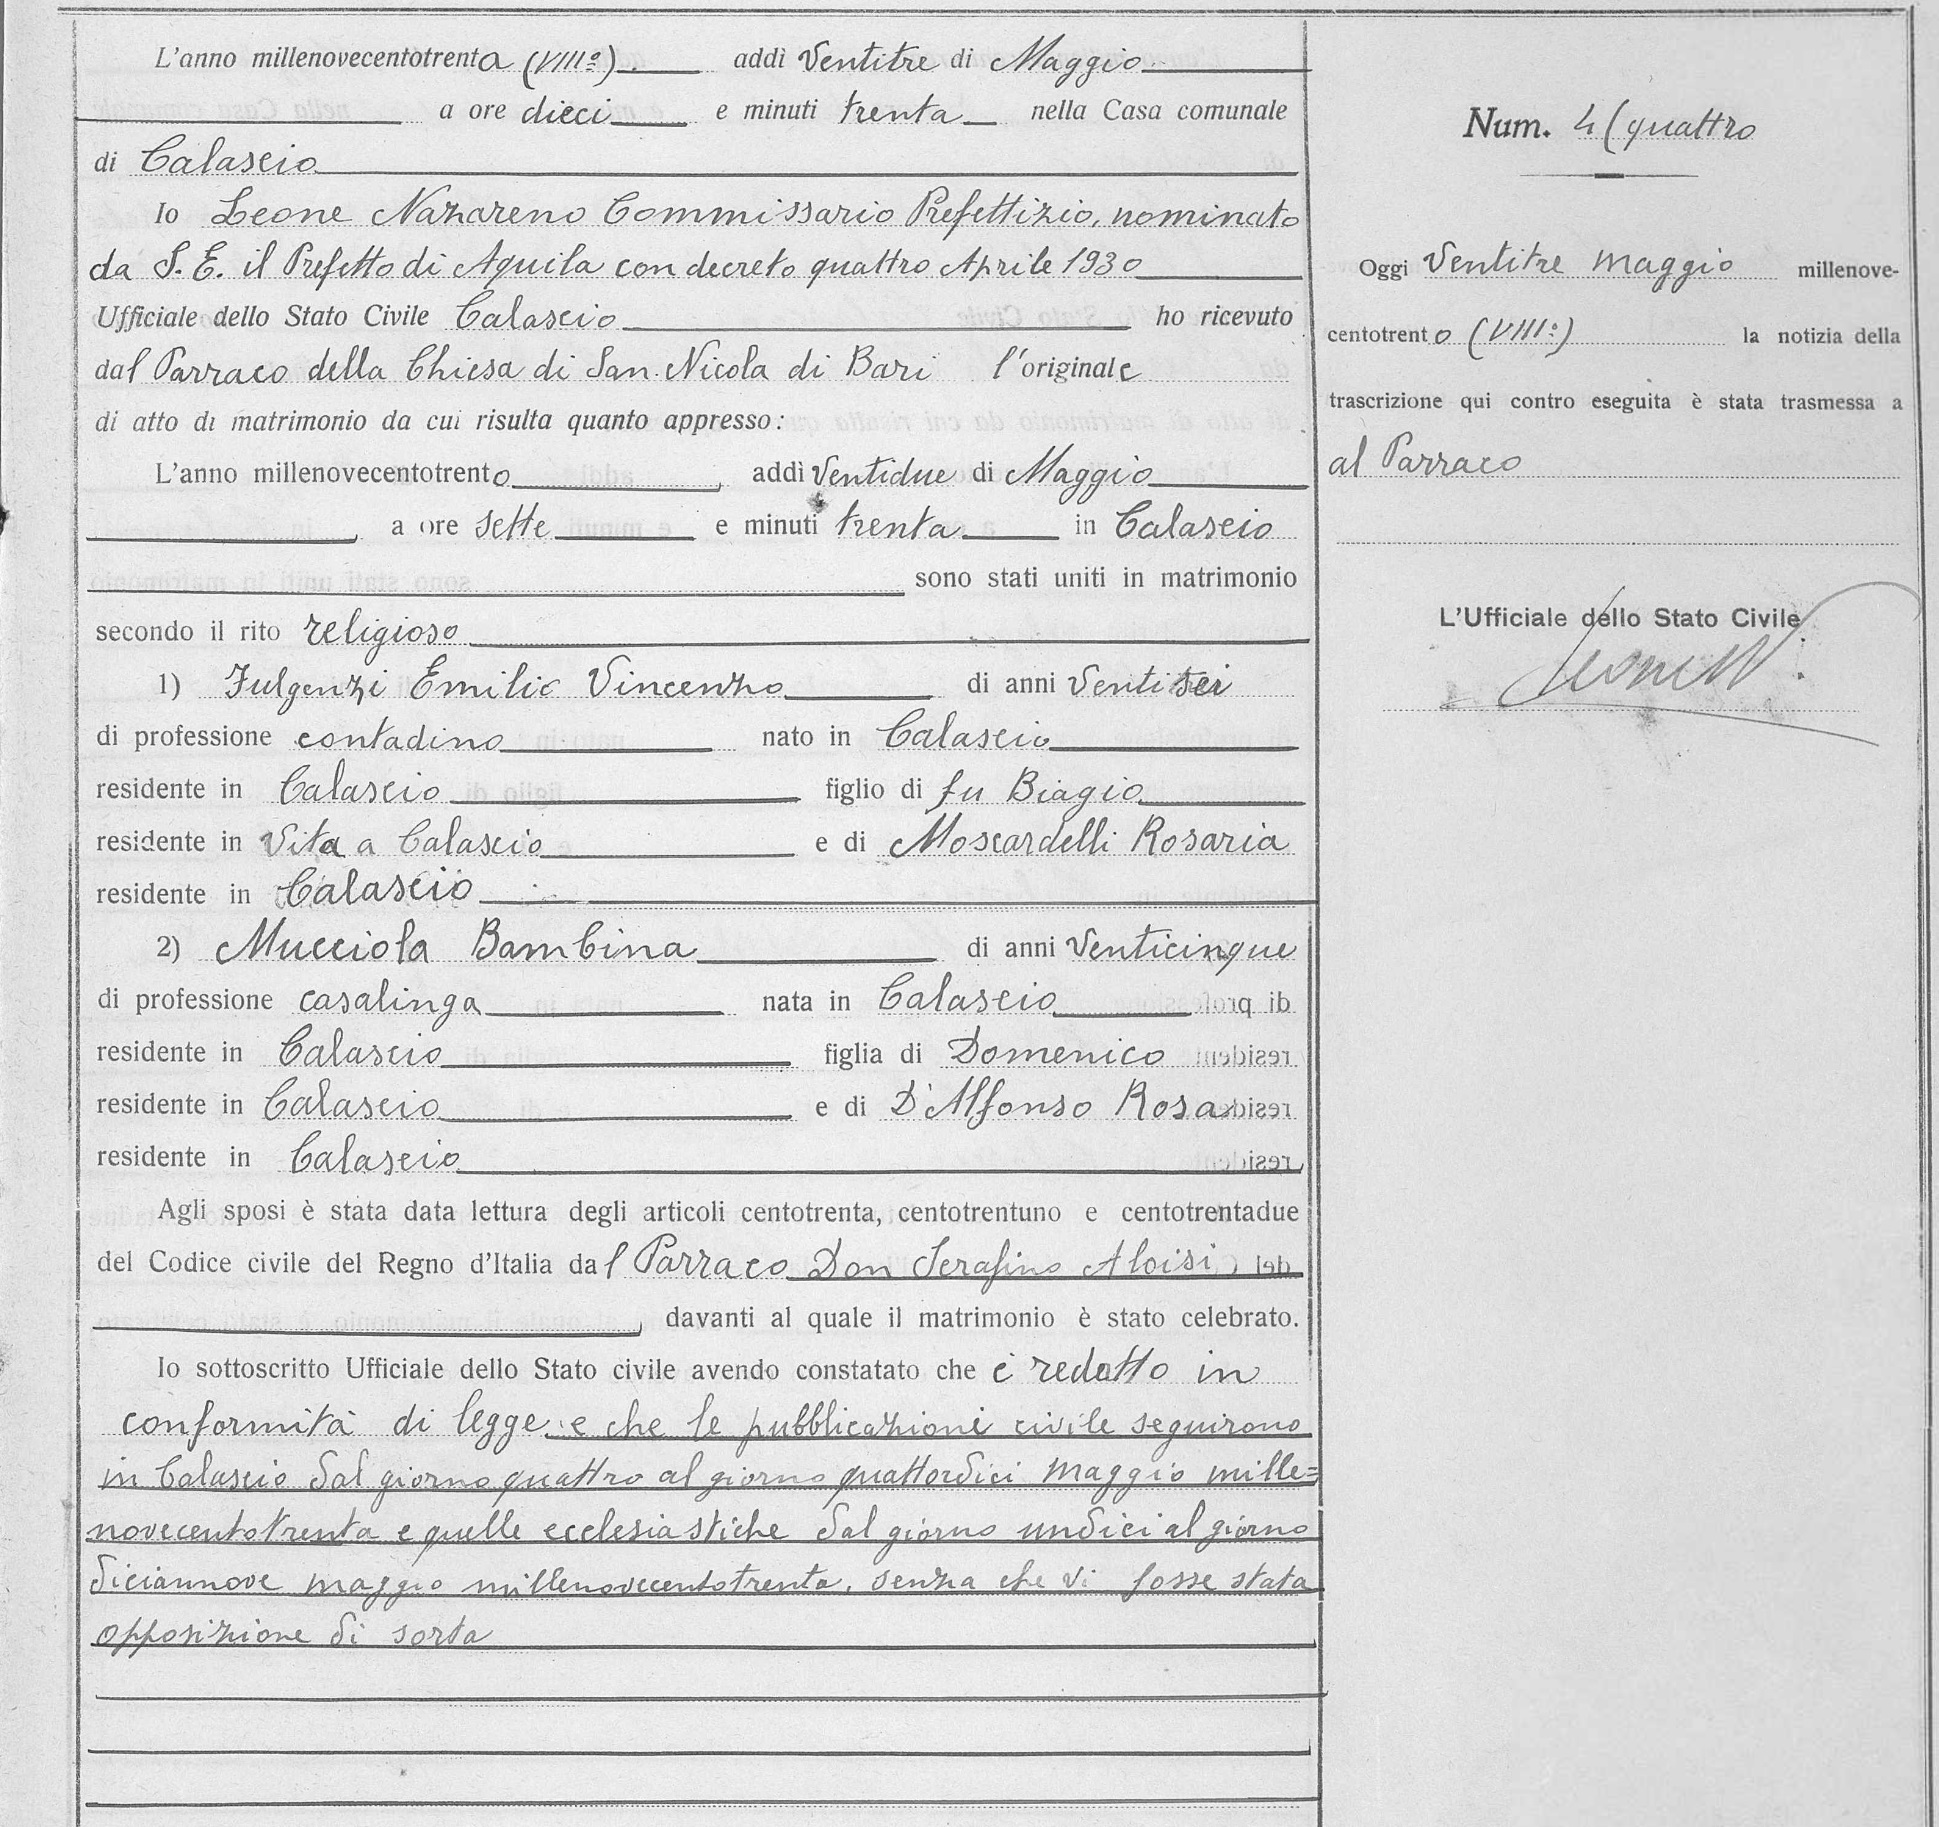 L'anno millenovecentotrenta (VIIIº). addì Ventitre di Maggio
a ore dieci e minuti trenta nella Casa comunale
di Calascio
Io Leone Nazareno Commissario Prefettizio, nominato
da S. E. il Prefetto di Aquila con decreto quattro Aprile 1930
Ufficiale dello Stato Civile Calascio ho ricevuto
dal Parraco della Chiesa di San Nicola di Bari l'originale
di atto di matrimonio da cui risulta quanto appresso:
L'anno millenovecentotrento, addì Ventidue di Maggio
, a ore sette e minuti trenta in Calascio
sono stati uniti in matrimonio
secondo il rito religioso
1) Fulgenzi Emilio Vincenzo di anni Ventisei
di professione contadino nato in Calascio
residente in Calascio figlio di fu Biagio
residente in Vita a Calascio e di Moscardelli Rosaria
residente in Calascio
2) Mucciola Bambina di anni Venticinque
di professione casalinga nata in Calascio
residente in Calascio figlia di Domenico
residente in Calascio e di D'Alfonso Rosa
residente in Calascio
Agli sposi è stata data lettura degli articoli centotrenta, centotrentuno e centotrentadue
del Codice civile del Regno d'Italia dal Parraco Don Serafino Aloisi
, davanti al quale il matrimonio è stato celebrato.
Io sottoscritto Ufficiale dello Stato civile avendo constatato che è redatto in
conformità di legge e che le pubblicazioni civile seguirono
in Calascio dal giorno quattro al giorno quattordici maggio mille=
novecentotrenta e quelle ecclesiastiche dal giorno undici al giorno
diciannove maggio millenovecentotrenta, senza che vi fosse stata
opposizione di sorta
Num. 4 (quattro
Oggi Ventitre maggio millenove-
centotrento (VIIIº) la notizia della
trascrizione qui contro eseguita è stata trasmessa a
al Parraco
L'Ufficiale dello Stato Civile
Leone N.